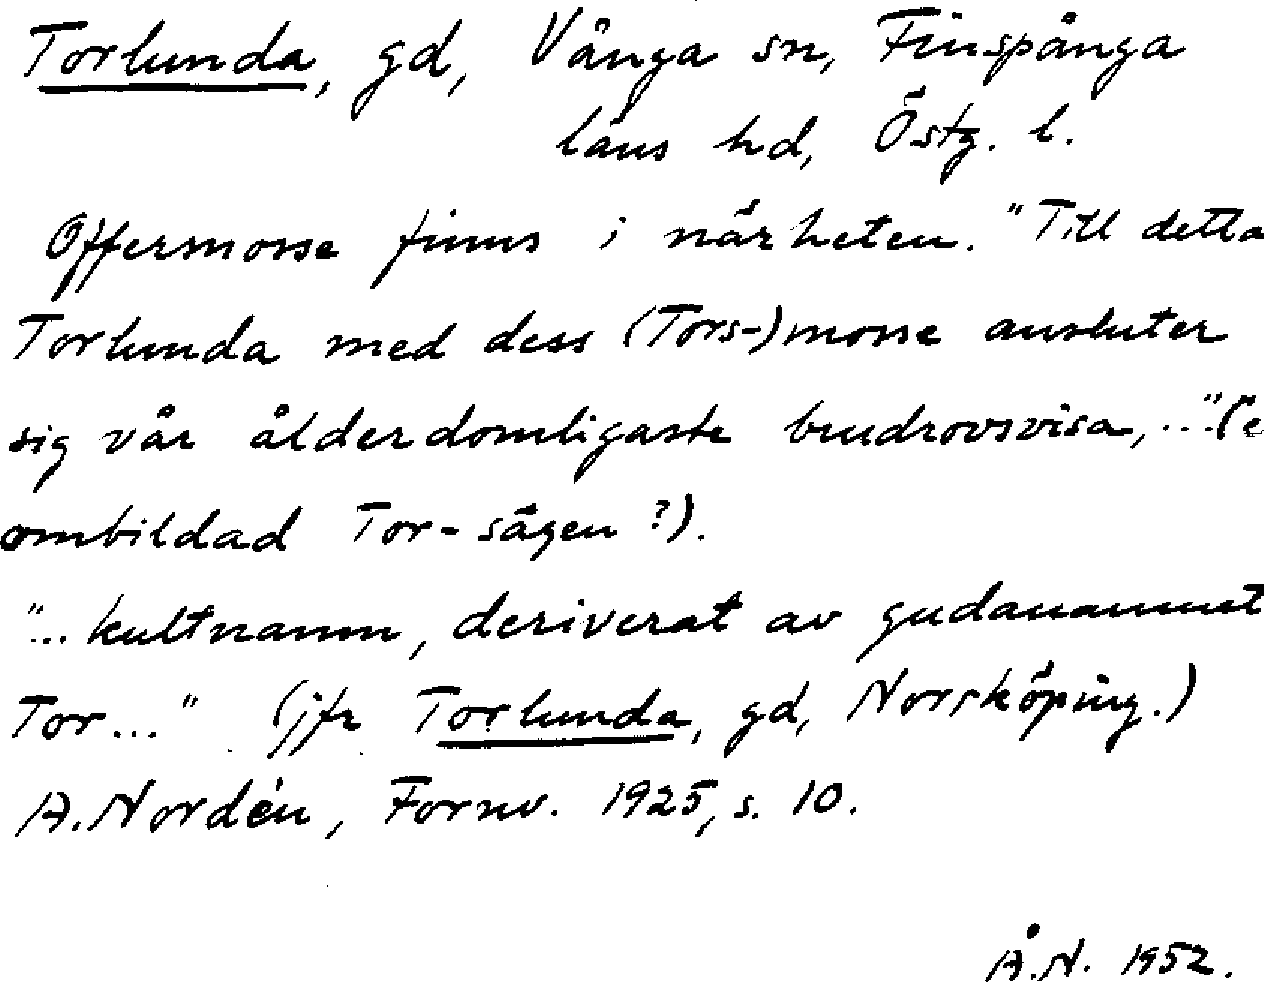 Torlunda, gd, Vånga sn, Finspånga
läns hd, Östg. l.
Offermosse finns i närheten. "Till detta
Torlunda med dess (Tors-)mosse ansluter
sig vår ålderdomligaste brudrovsvisa, ..."(e
ombildad Tor-sägen?).
"...kultnamn, deriverat av gudanamnet
Tor..." (jfr Torlunda, gd, Norrköping.)
A. Nordén, Fornv. 1925, s. 10.
Å.N. 1952.